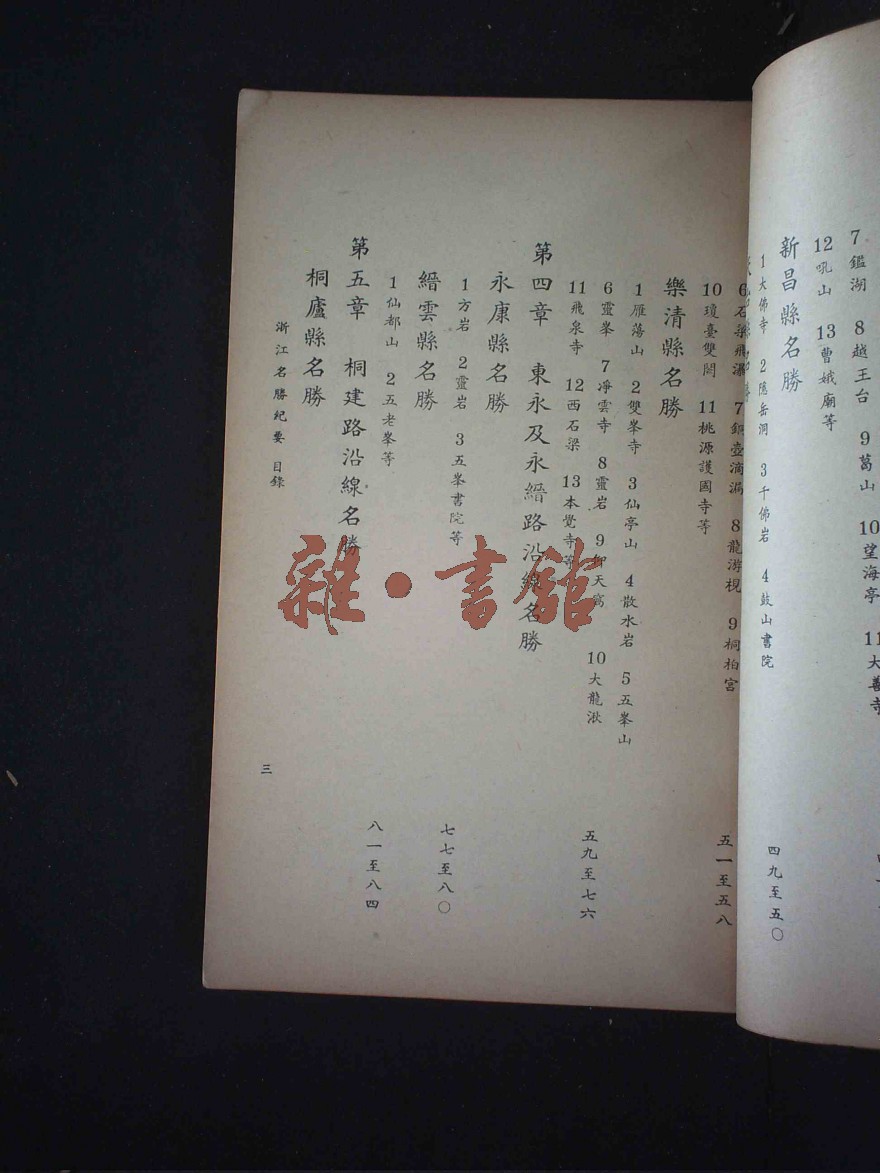 7鑑湖 8越王台 9葛山 10望海亭 11大善寺
12吼山 13曹娥廟等
新昌縣名勝
1大佛寺 2隱岳洞 3千佛岩 4鼓山書院
四九至五〇
6石梁飛瀑 7銅壺滴漏 8龍游梘 9桐柏宮
10瓊臺雙闕 11桃源護國寺等
五一至五八
樂清縣名勝
1雁蕩山 2雙峯寺 3仙亭山 4散水岩 5五峯山
6靈峯 7凈雲寺 8靈岩 9仰天窩 10大龍湫
11飛泉寺 12西石梁 13本覺寺等
五九至七六
第四章 東永及永縉路沿線名勝
永康縣名勝
1方岩 2靈岩 3五峯書院等
七七至八〇
縉雲縣名勝
1仙都山 2五老峯等
八一至八四
第五章 桐建路沿線名勝
桐廬縣名勝
浙江名勝紀要 目錄
三
雜·書館